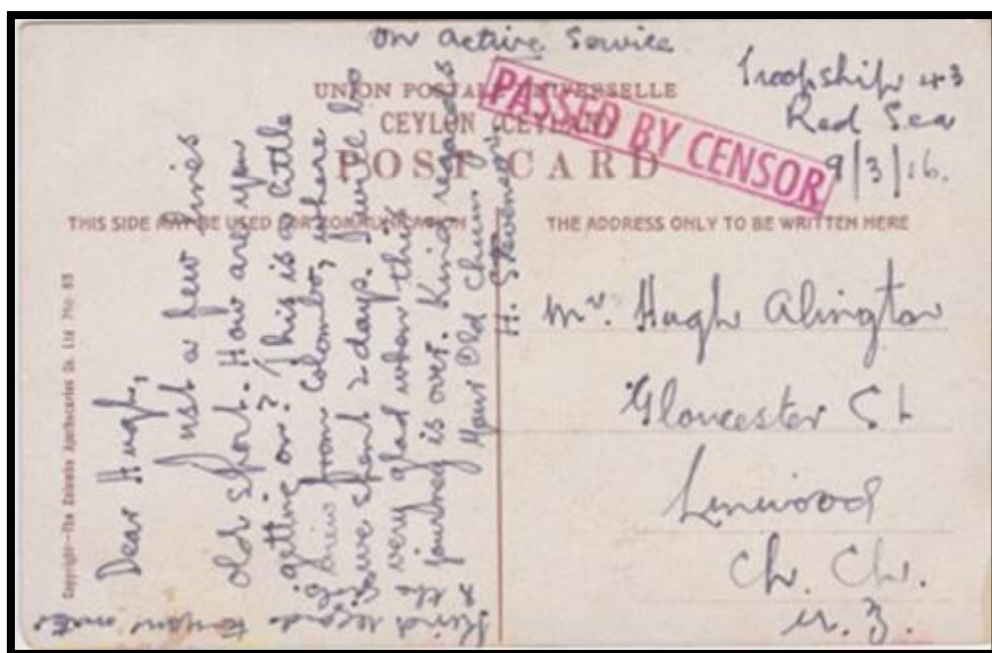 on active service
Troopship 43
Red Sea
9/3/16.
PASSED BY CENSOR
UNION POSTALE UNIVERSELLE
CEYLON (CEYLAN)
POST CARD
THIS SIDE MAY BE USED FOR COMMUNICATION
THE ADDRESS ONLY TO BE WRITTEN HERE
Copyright—The Colombo Apothecaries Co. Ltd No 83
Dear Hugh,
Just a few lines
old sport. How are you
getting on? This is a little
view from Colombo, where
we spent 2 days. I will be
very glad when this
journey is over. Kind regards
Your Old Chum
H. Stevenson
Kind regards to your mater
& the
Mr. Hugh Alington
Gloucester St
Linwood
Ch. Ch.
N.Z.